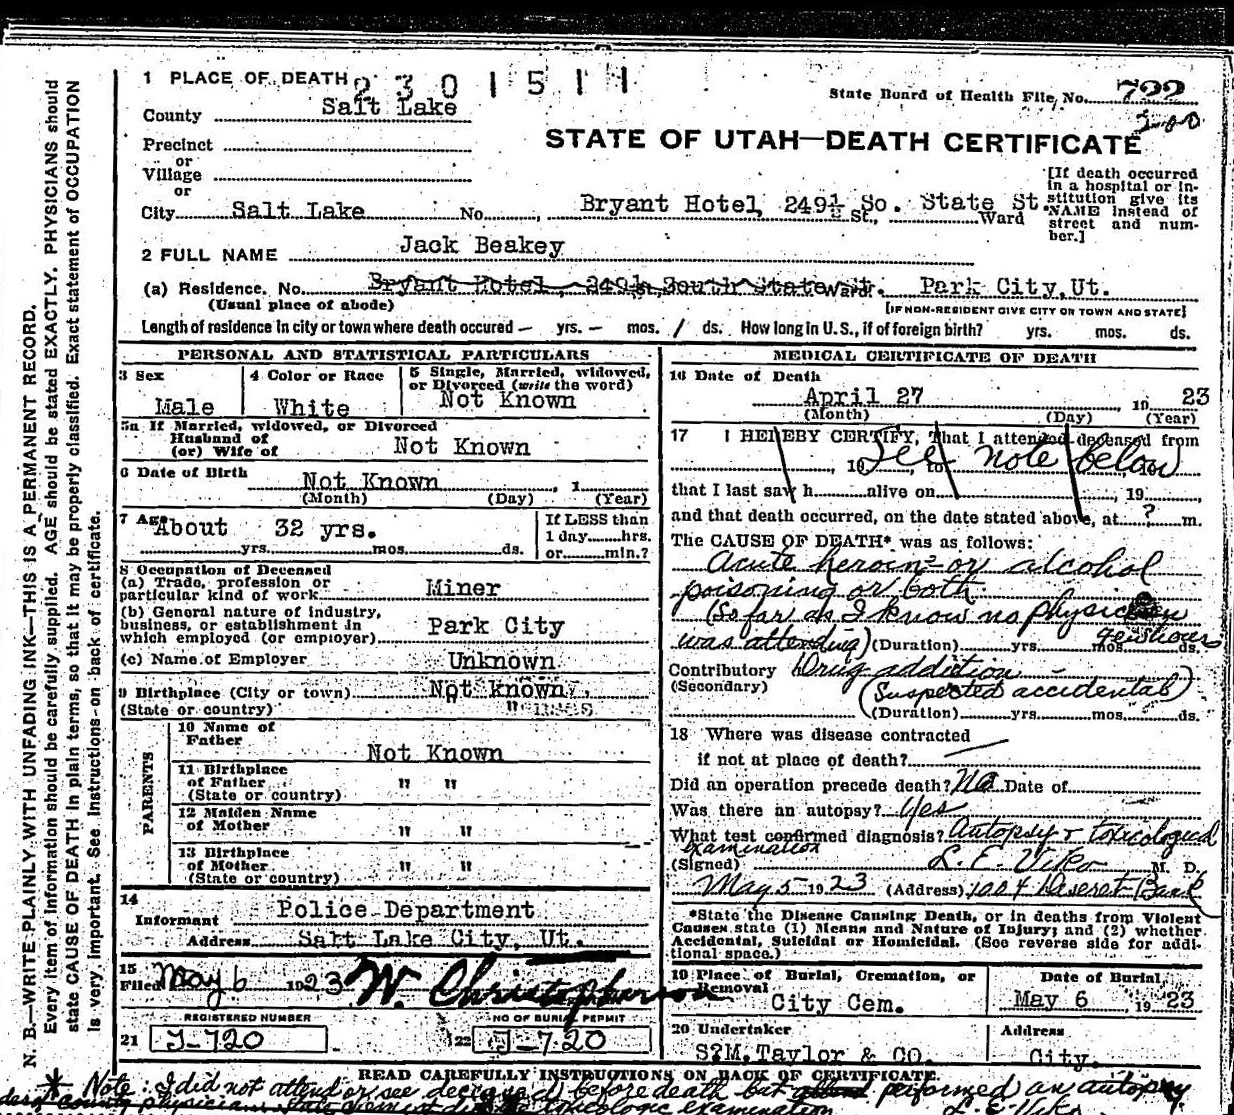 1 PLACE OF DEATH 2301511
State Board of Health File No. 722
County Salt Lake
200
STATE OF UTAH—DEATH CERTIFICATE
Precinct
or
Village
or
City Salt Lake No. Bryant Hotel, 249½ So. State St. St., Ward
[If death occurred in a hospital or institution give its NAME instead of street and number.]
2 FULL NAME Jack Beakey
(a) Residence. No. Bryant Hotel, 249½ South State St. Ward. Park City, Ut.
(Usual place of abode) [IF NON-RESIDENT GIVE CITY OR TOWN AND STATE]
Length of residence in city or town where death occured — yrs. — mos. / ds. How long in U. S., if of foreign birth? yrs. mos. ds.
PERSONAL AND STATISTICAL PARTICULARS
3 Sex
Male
4 Color or Race
White
5 Single, Married, widowed,
or Divorced (write the word)
Not Known
5a If Married, widowed, or Divorced
Husband of
(or) Wife of Not Known
6 Date of Birth
Not Known , 1
(Month) (Day) (Year)
7 Age About 32 yrs.
yrs. mos. ds.
If LESS than
1 day hrs.
or min.?
8 Occupation of Deceased
(a) Trade, profession or
particular kind of work Miner
(b) General nature of industry,
business, or establishment in
which employed (or employer) Park City
(c) Name of Employer Unknown
9 Birthplace (City or town) Not known
(State or country) "
PARENTS
10 Name of
Father Not Known
11 Birthplace
of Father " "
(State or country)
12 Maiden Name
of Mother " "
13 Birthplace
of Mother " "
(State or country)
14
Informant Police Department
Address Salt Lake City, Ut.
15
Filed May 6 1923 W. Christopherson
REGISTERED NUMBER NO OF BURIAL PERMIT
21 J-720 22 J-720
MEDICAL CERTIFICATE OF DEATH
16 Date of Death
April 27 19 23
(Month) (Day) (Year)
17 I HEREBY CERTIFY, That I attended deceased from
, 19 to , 19 See note below
that I last saw h alive on , 19
and that death occurred, on the date stated above, at ? m.
The CAUSE OF DEATH* was as follows:
Acute heroin or alcohol
poisoning or both.
(So far as I know no physician
was attending) (Duration) yrs. mos. ds.
hours
Contributory Drug addiction —
(Secondary) (Suspected accidental)
(Duration) yrs. mos. ds.
18 Where was disease contracted
if not at place of death? —
Did an operation precede death? No Date of
Was there an autopsy? Yes
What test confirmed diagnosis? Autopsy & toxicological
examination
(Signed) L. E. Viko M. D.
May 5 1923 (Address) 1004 Deseret Bank
*State the Disease Causing Death, or in deaths from Violent
Causes state (1) Means and Nature of Injury; and (2) whether
Accidental, Suicidal or Homicidal. (See reverse side for addi-
tional space.)
19 Place of Burial, Cremation, or
Removal
City Cem.
Date of Burial
May 6, 19 23
20 Undertaker
S.M. Taylor & CO.
Address
City.
READ CAREFULLY INSTRUCTIONS ON BACK OF CERTIFICATE
* Note: I did not attend or see deceased before death but performed an autopsy
county physician. State chemist did toxicologic examination L. E. Viko
N. B.—WRITE PLAINLY WITH UNFADING INK—THIS IS A PERMANENT RECORD.
Every item of information should be carefully supplied. AGE should be stated EXACTLY. PHYSICIANS should
state CAUSE OF DEATH in plain terms, so that it may be properly classified. Exact statement of OCCUPATION
is very important. See instructions on back of certificate.